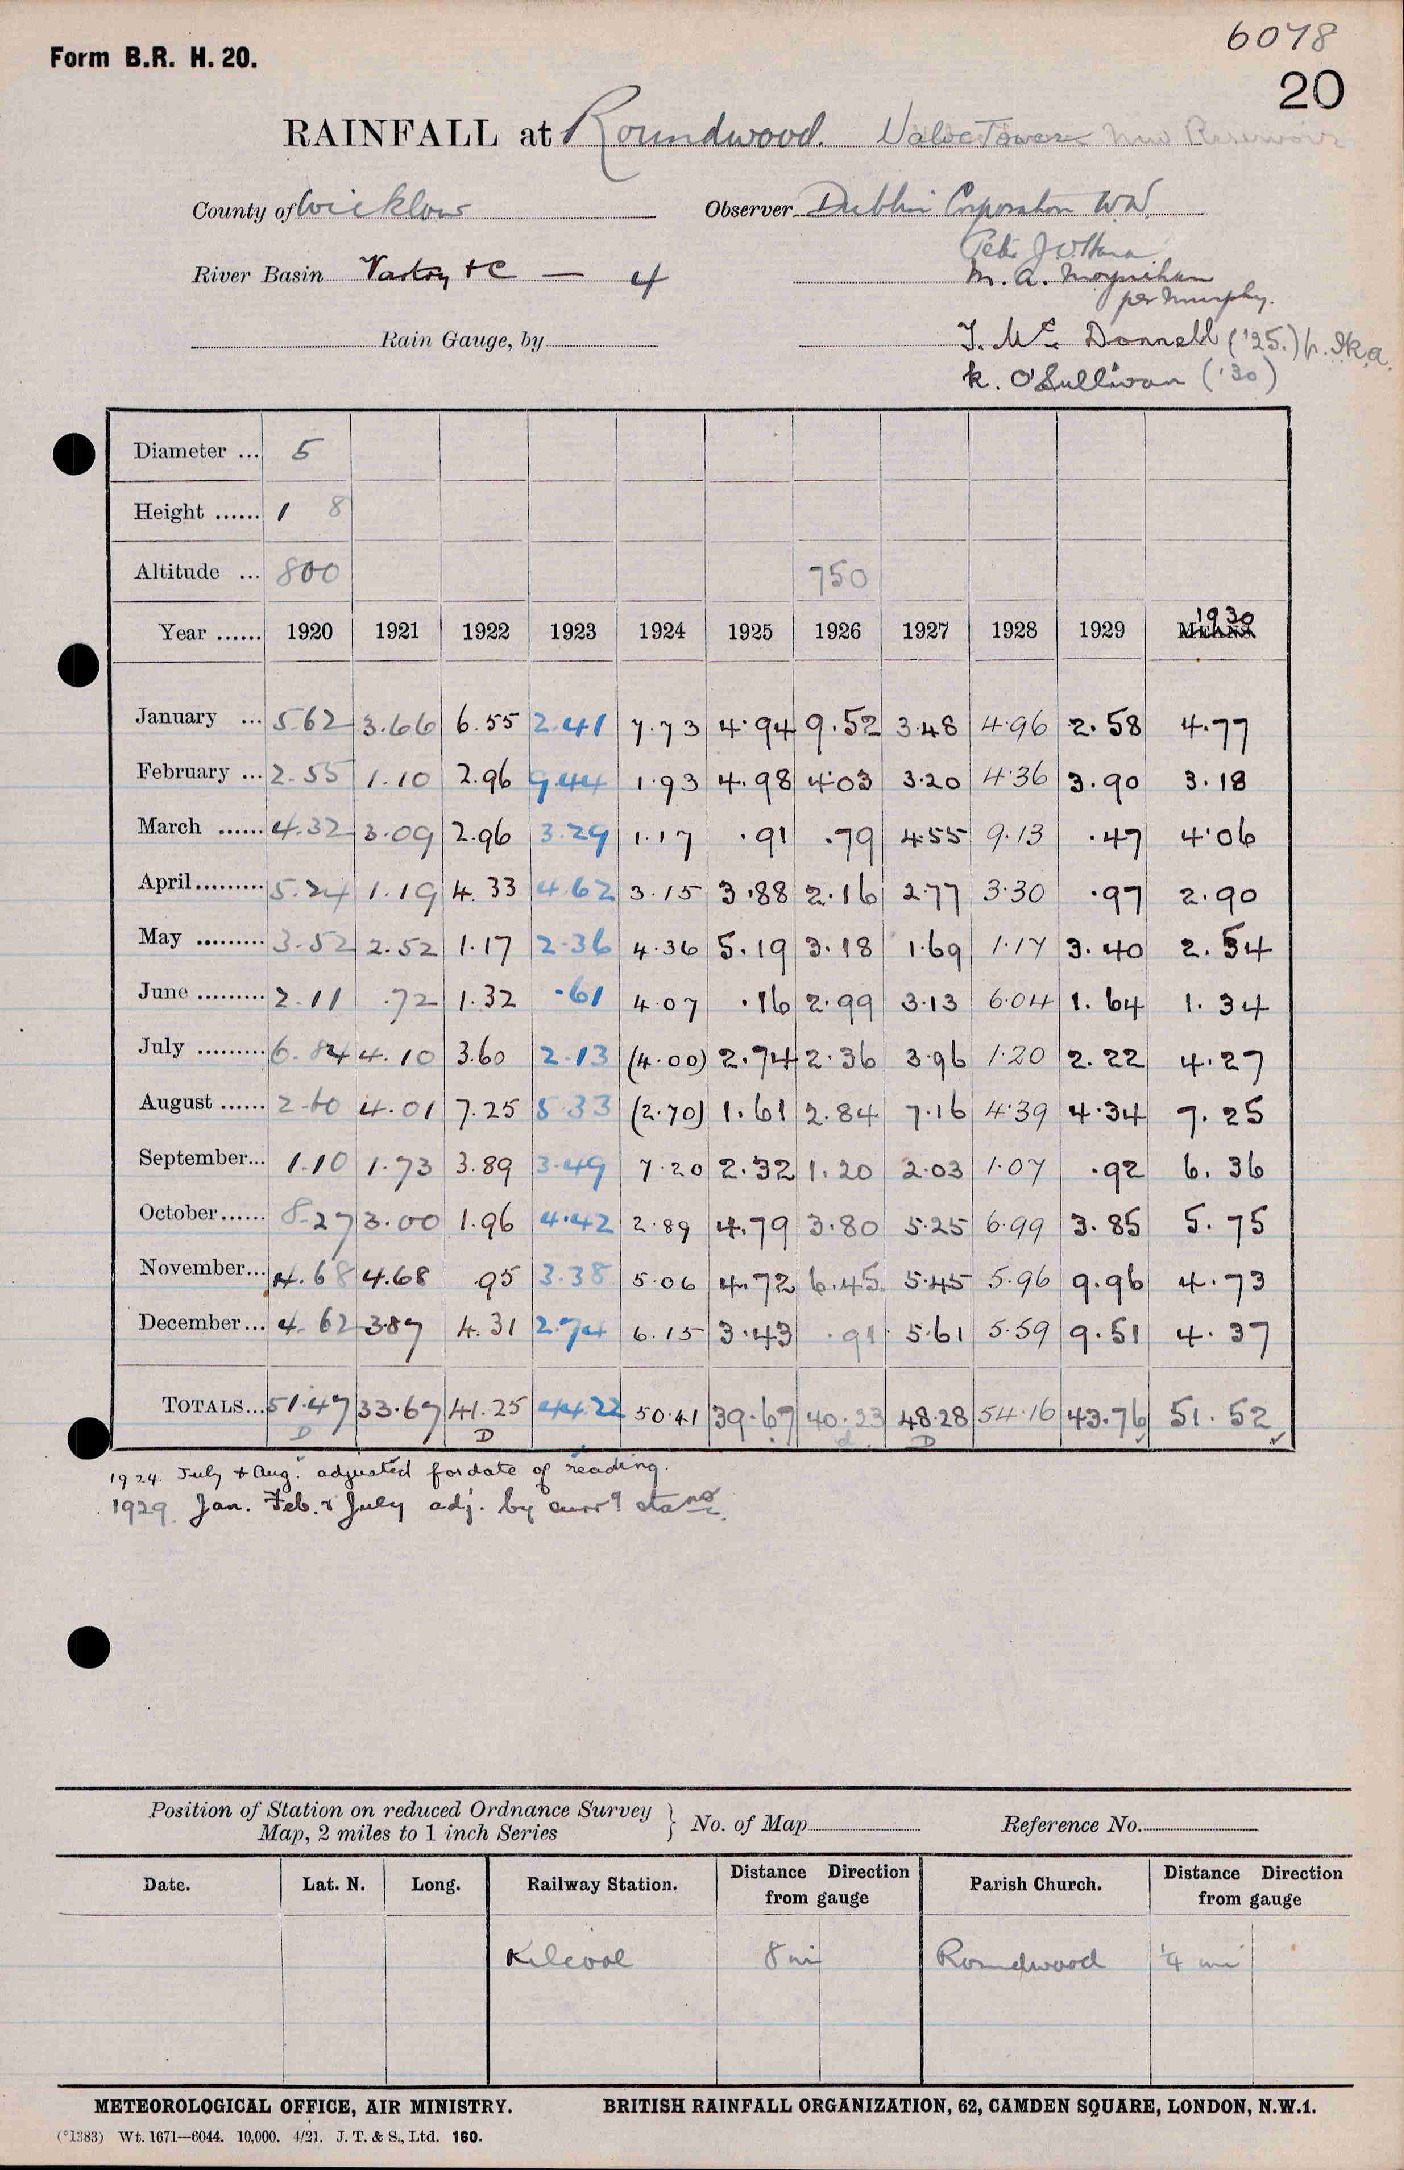 6078
Form B.R. H. 20.
20
RAINFALL at Roundwood. Valve Tower New Reservoir
County of Wicklow Observer Dublin Corporation W.W.
River Basin Vartry &c — 4
M. A. Moynihan
per Murphy.
Rain Gauge, by
T. Mc Donnell ('25.)
K. O'Sullivan ('30)
Diameter ... 5
Height ...... 1 8
Altitude ... 800 750
1930
Year ...... 1920 1921 1922 1923 1924 1925 1926 1927 1928 1929 MEANS
January ... 5.62 3.66 6.55 2.41 7.73 4.94 9.52 3.48 4.96 2.58 4.77
February ... 2.55 1.10 2.96 9.44 1.93 4.98 4.03 3.20 4.36 3.90 3.18
March ...... 4.32 3.09 2.96 3.29 1.17 .91 .79 4.55 9.13 .47 4.06
April......... 5.24 1.19 4.33 4.62 3.15 3.88 2.16 2.77 3.30 .97 2.90
May ......... 3.52 2.52 1.17 2.36 4.36 5.19 3.18 1.69 1.17 3.40 2.54
June ......... 2.11 .72 1.32 .61 4.07 .16 2.99 3.13 6.04 1.64 1.34
July ......... 6.84 4.10 3.60 2.13 (4.00) 2.74 2.36 3.96 1.20 2.22 4.27
August ...... 2.60 4.01 7.25 5.33 (2.70) 1.61 2.84 7.16 4.39 4.34 7.25
September... 1.10 1.73 3.89 3.49 7.20 2.32 1.20 2.03 1.07 .92 6.36
October...... 8.27 3.00 1.96 4.42 2.89 4.79 3.80 5.25 6.99 3.85 5.75
November... 4.68 4.68 .95 3.38 5.06 4.72 6.45 5.45 5.96 9.96 4.73
December... 4.62 3.87 4.31 2.74 6.15 3.43 .91 5.61 5.59 9.51 4.37
TOTALS... 51.47 33.67 41.25 44.22 50.41 39.67 40.23 48.28 54.16 43.76 51.52
D D d D
1924 July & Aug. adjusted for date of reading.
1929. Jan. Feb. & July adj. by surrg stans.
Position of Station on reduced Ordnance Survey
Map, 2 miles to 1 inch Series } No. of Map Reference No.
Date. Lat. N. Long. Railway Station. Distance Direction from gauge Parish Church. Distance Direction from gauge
Kilcool 8 mi Roundwood 1/4 mi
METEOROLOGICAL OFFICE, AIR MINISTRY. BRITISH RAINFALL ORGANIZATION, 62, CAMDEN SQUARE, LONDON, N.W.1.
(*1383) Wt. 1671—6044. 10,000. 4/21. J. T. & S., Ltd. 160.